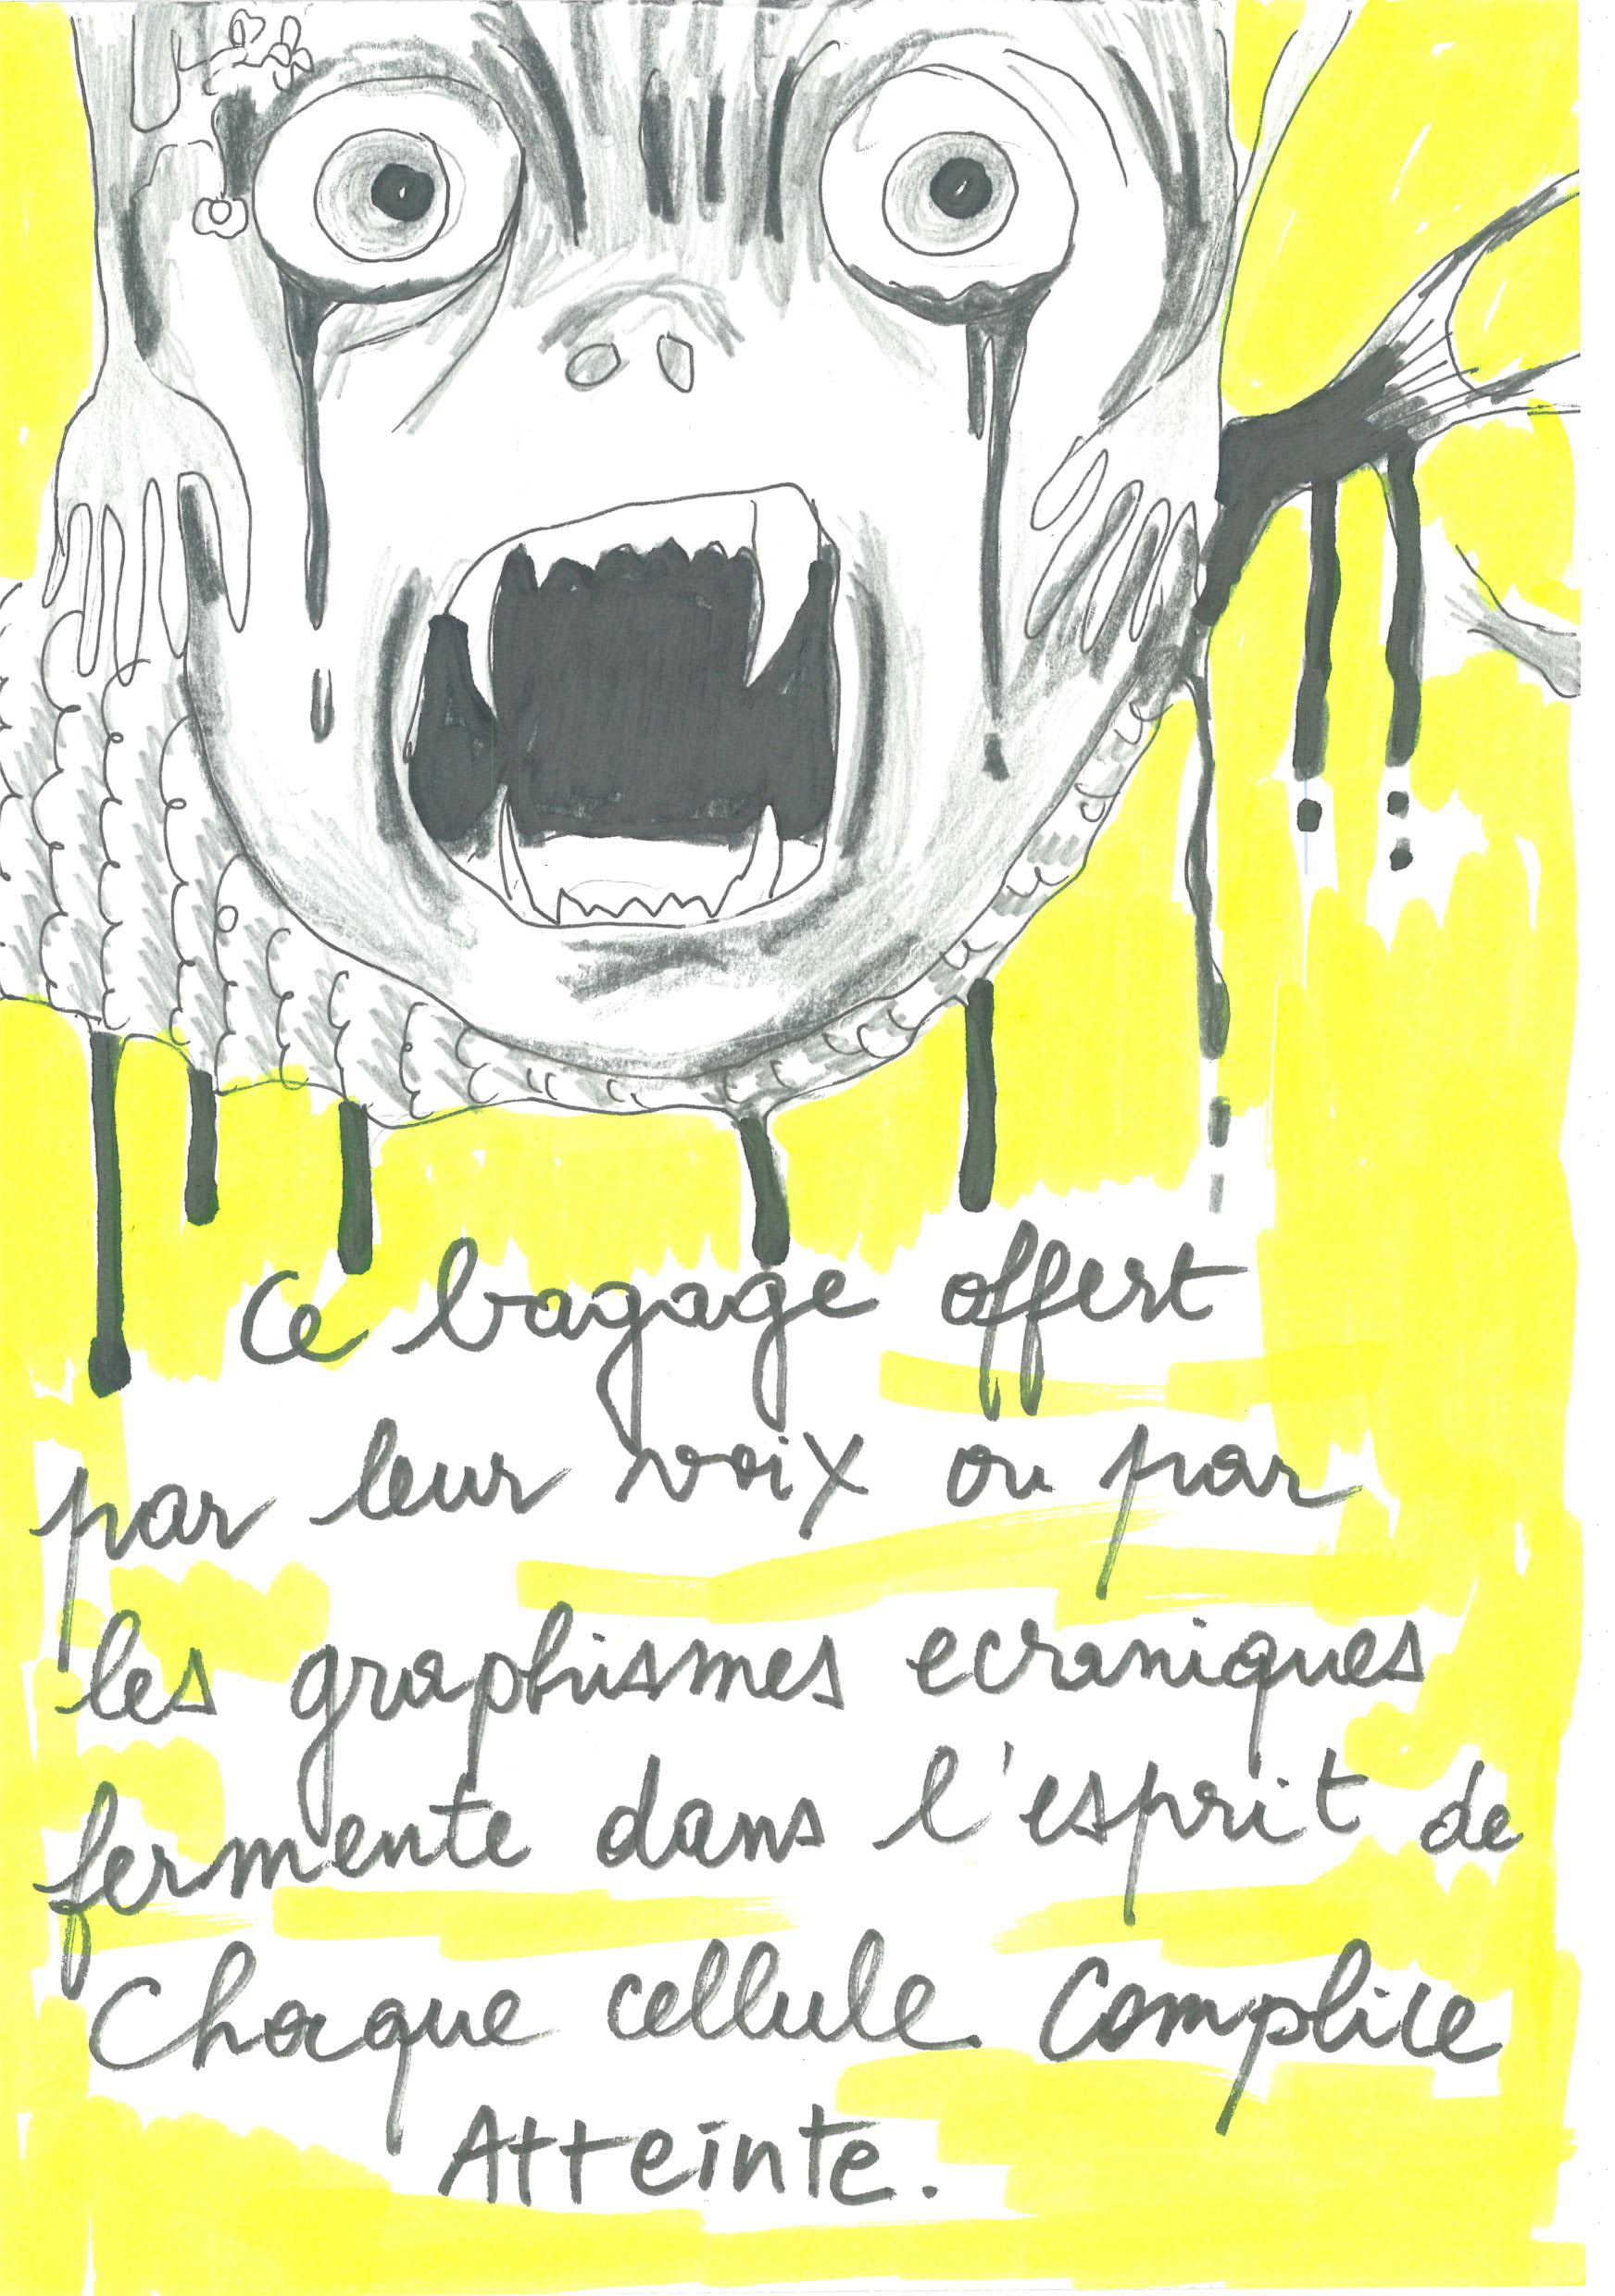 Ce bagage offert
par leur voix ou par
les graphismes ecraniques
fermente dans l'esprit de
Chaque cellule. Complice
Atteinte.